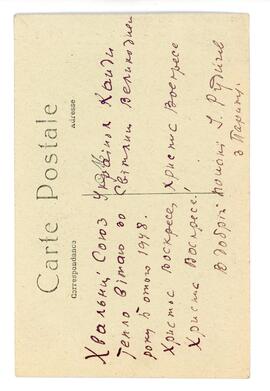 Carte Postale
Correspondance
adresse
Хвальний Союз Українок Канади
Тепло Вітаю зо Світлим Великоднем
року Б отого 1948.
Христос Воскресе, Христос Воскресе
Христос Воскресе!
В глибокій пошані І.
з Парижу.